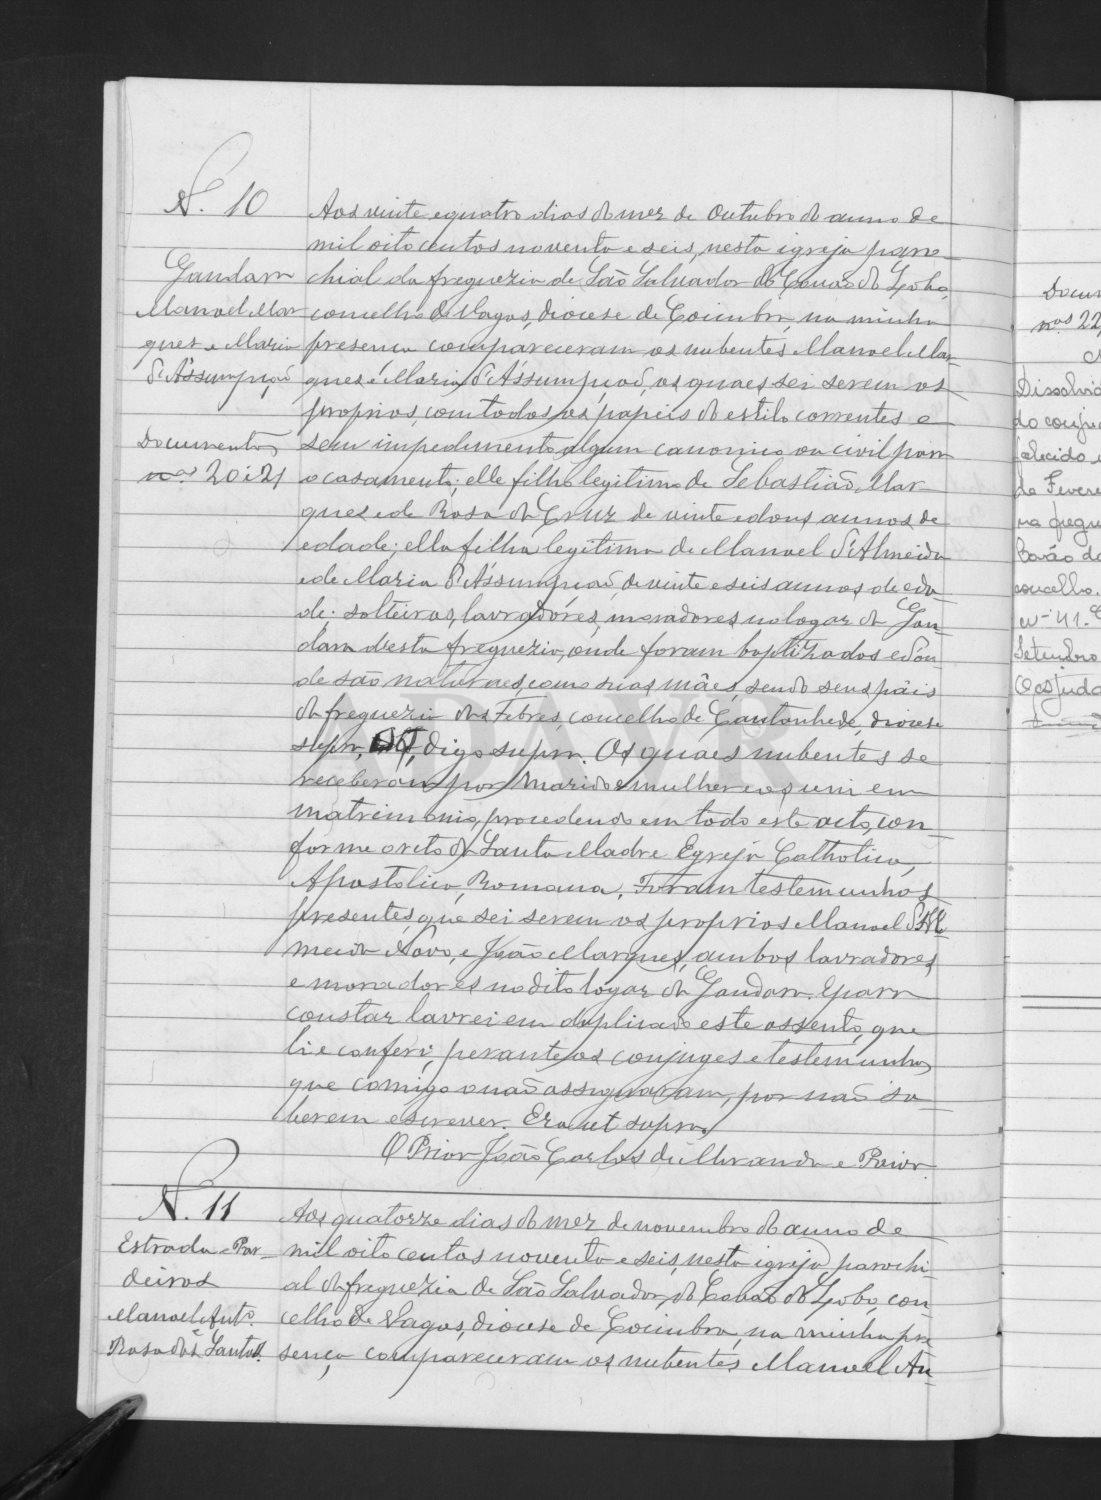 N. 10
Gandara
Manoel Mar
ques e Maria
d'Assumpção
Documentos
nos 20 i 21
Aos vinte e quatro dias do mez de Outubro do anno de
mil oito centos noventa e seis, nesta igreja paro-
chial da freguezia de São Salvador do Covão do Lobo,
concelho de Vagos, diocese de Coimbra, na minha
presença compareceram os nubentes Manoel Mar
ques e Maria d'Assumpção, os quaes sei serem os
proprios, com todos os papeis do estilo correntes e
sem impedimento algum canonico ou civil para
o casamento; elle filho legitimo de Sebastião Mar
ques e de Rosa da Cruz de vinte e dous annos de
edade; ella filha legitima de Manoel d'Almeida
e de Maria d'Assumpção, de vinte e seis annos de eda-
de; solteiros, lavradores, moradores no logar da Gan-
dara desta freguezia, onde foram baptizados e don-
de são naturaes, como suas mães, sendo seus pais
da freguezia das Febres, concelho de Cantanhede, diocese
supra, digo supra. Os quaes nubentes se
receberam por marido e mulher e os uni em
matrimonio, procedendo em todo este acto, con-
forme o rito da Santa Madre Egreja Catholica,
Apostolica, Romana. Foram testemunhas
presentes, que sei serem os proprios Manoel d'Al
meida Novo, e João Marques, ambos lavradores,
e moradores no dito logar da Gandara. E para
constar lavrei em duplicado este assento, que
li e conferi perante os conjuges e testemunhas
que comigo o não assignaram, por não sa-
berem escrever. Era ut supra.
O Prior João Carlos de Miranda e Prior.
N. 11
Estrada e Par-
deiros
Manoel Anto.
e
Rosa dos Santos.
Aos quatorze dias do mez de novembro do anno de
mil oito centos noventa e seis, nesta igreja parochi-
al da freguezia de São Salvador do Covão do Lobo, con
celho de Vagos, diocese de Coimbra, na minha pre
sença compareceram os nubentes Manoel An-
Docum
nos 22,
Dissolvid
do conju
falecido
de Fevere
na fregu
Covão do
concelho.
Setembro
O ajuda